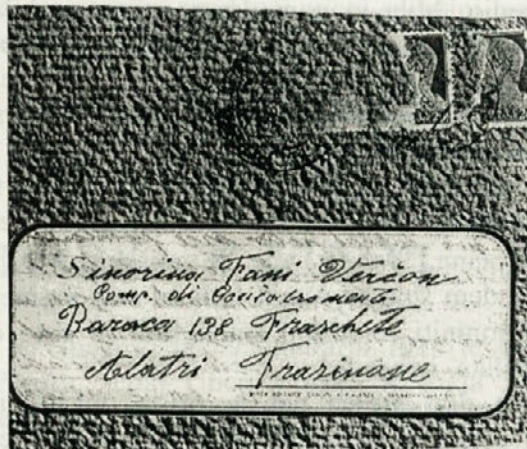 Sinorina Fani Verčon
Comp. di Concatromento
Baraca 138 Fraschete
Alatri Frasinone